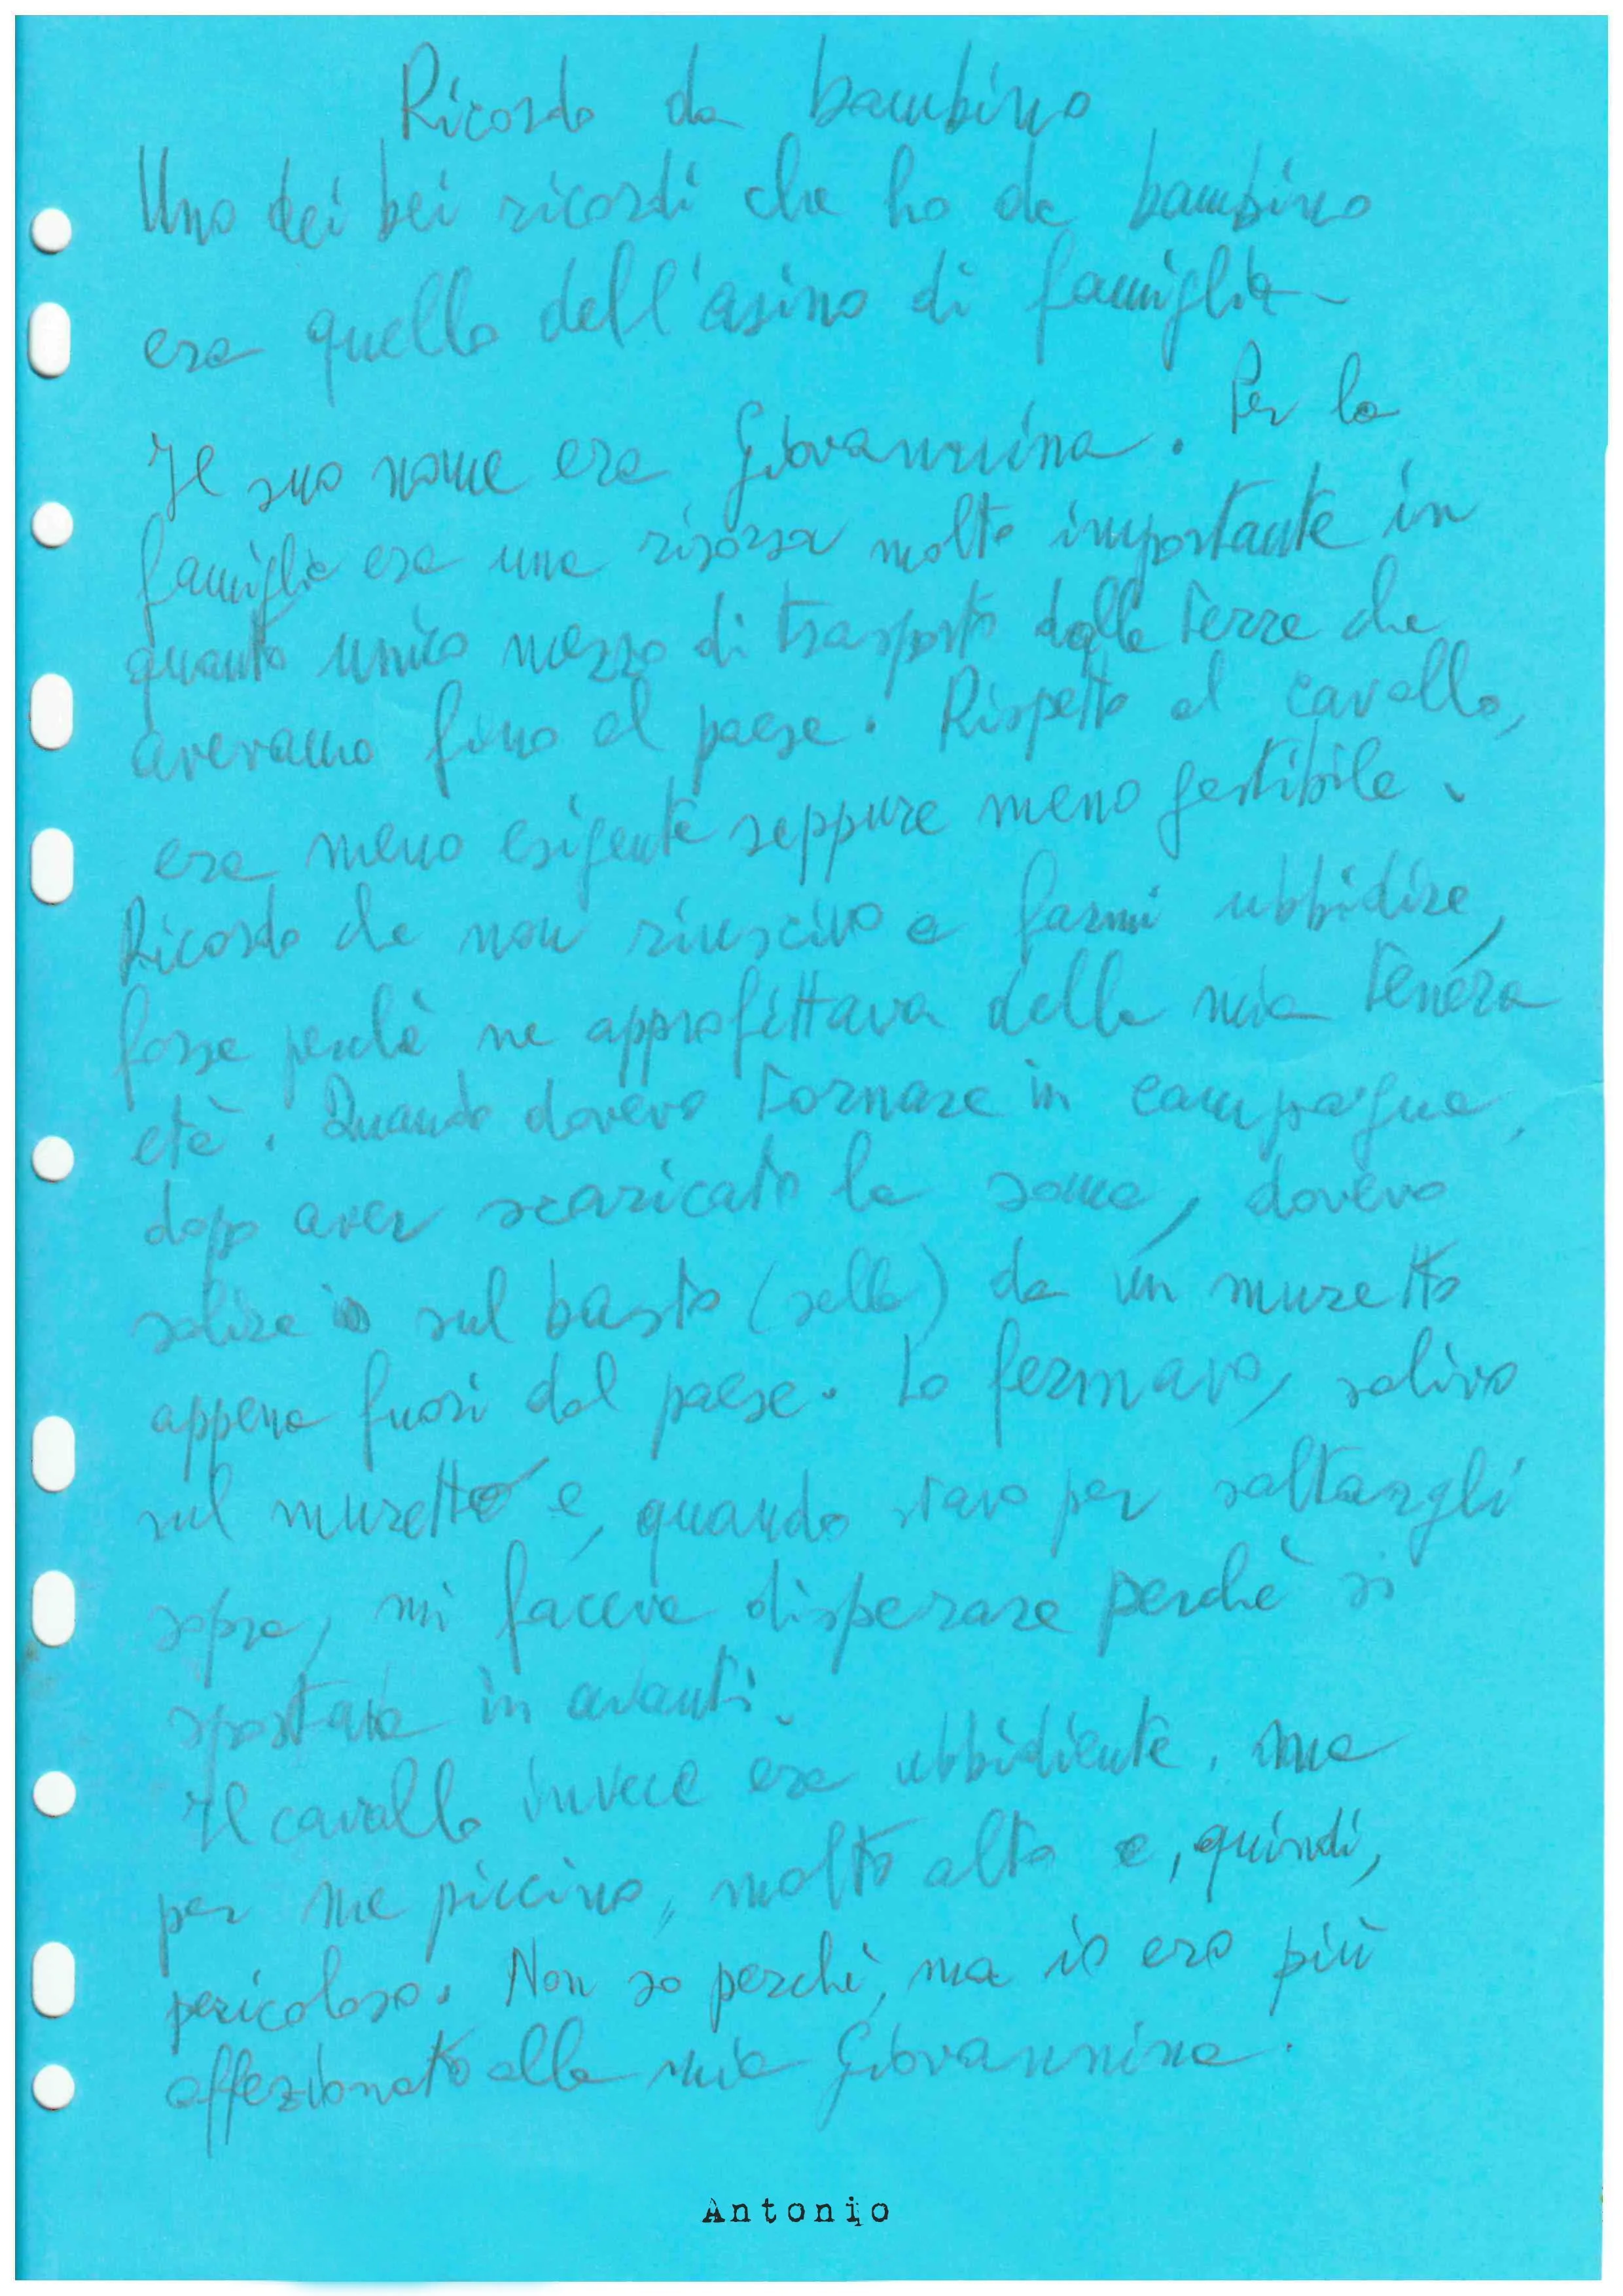 Ricordo da bambino
Uno dei bei ricordi che ho da bambino
era quello dell'asino di famiglia.
Il suo nome era Giovannina. Per la
famiglia era una risorsa molto importante in
quanto unico mezzo di trasporto dalle terre che
avevamo fino al paese. Rispetto al cavallo,
era meno esigente seppure meno gestibile.
Ricordo che non riuscivo a farmi ubbidire,
forse perchè ne approfittava della mia tenera
età. Quando dovevo tornare in campagna,
dopo aver scaricato la soma, dovevo
salire sul basto (sella) da un muretto
appena fuori dal paese. Lo fermavo, salivo
sul muretto e, quando stavo per saltargli
sopra, mi faceva disperare perchè si
spostava in avanti.
Il cavallo invece era ubbidiente, ma
per me piccino, molto alto e, quindi,
pericoloso. Non so perchè, ma io ero più
affezionato alla mia Giovannina.
Antonio